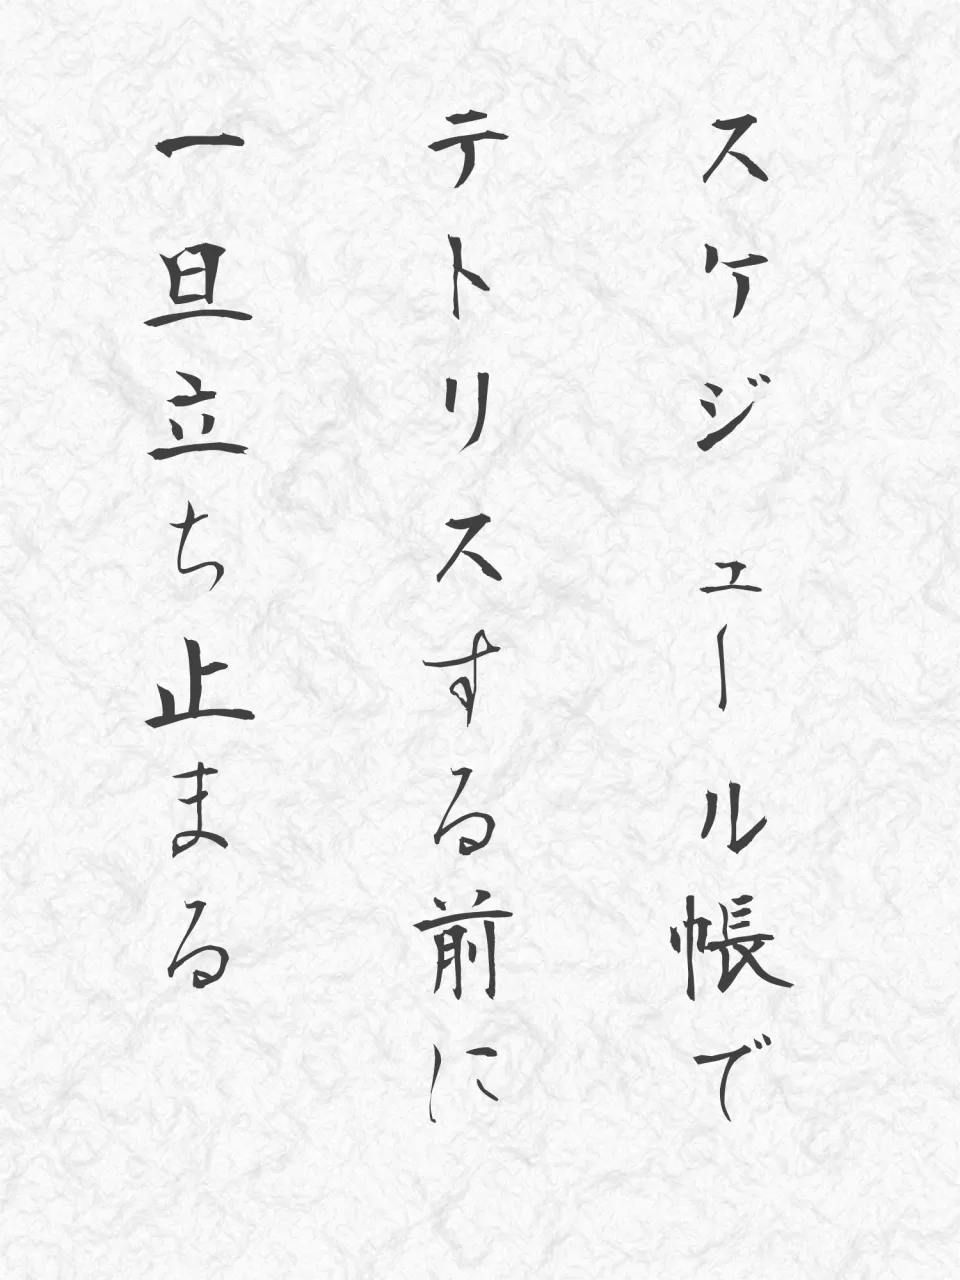 スケジュール帳で
テトリスする前に
一旦立ち止まる